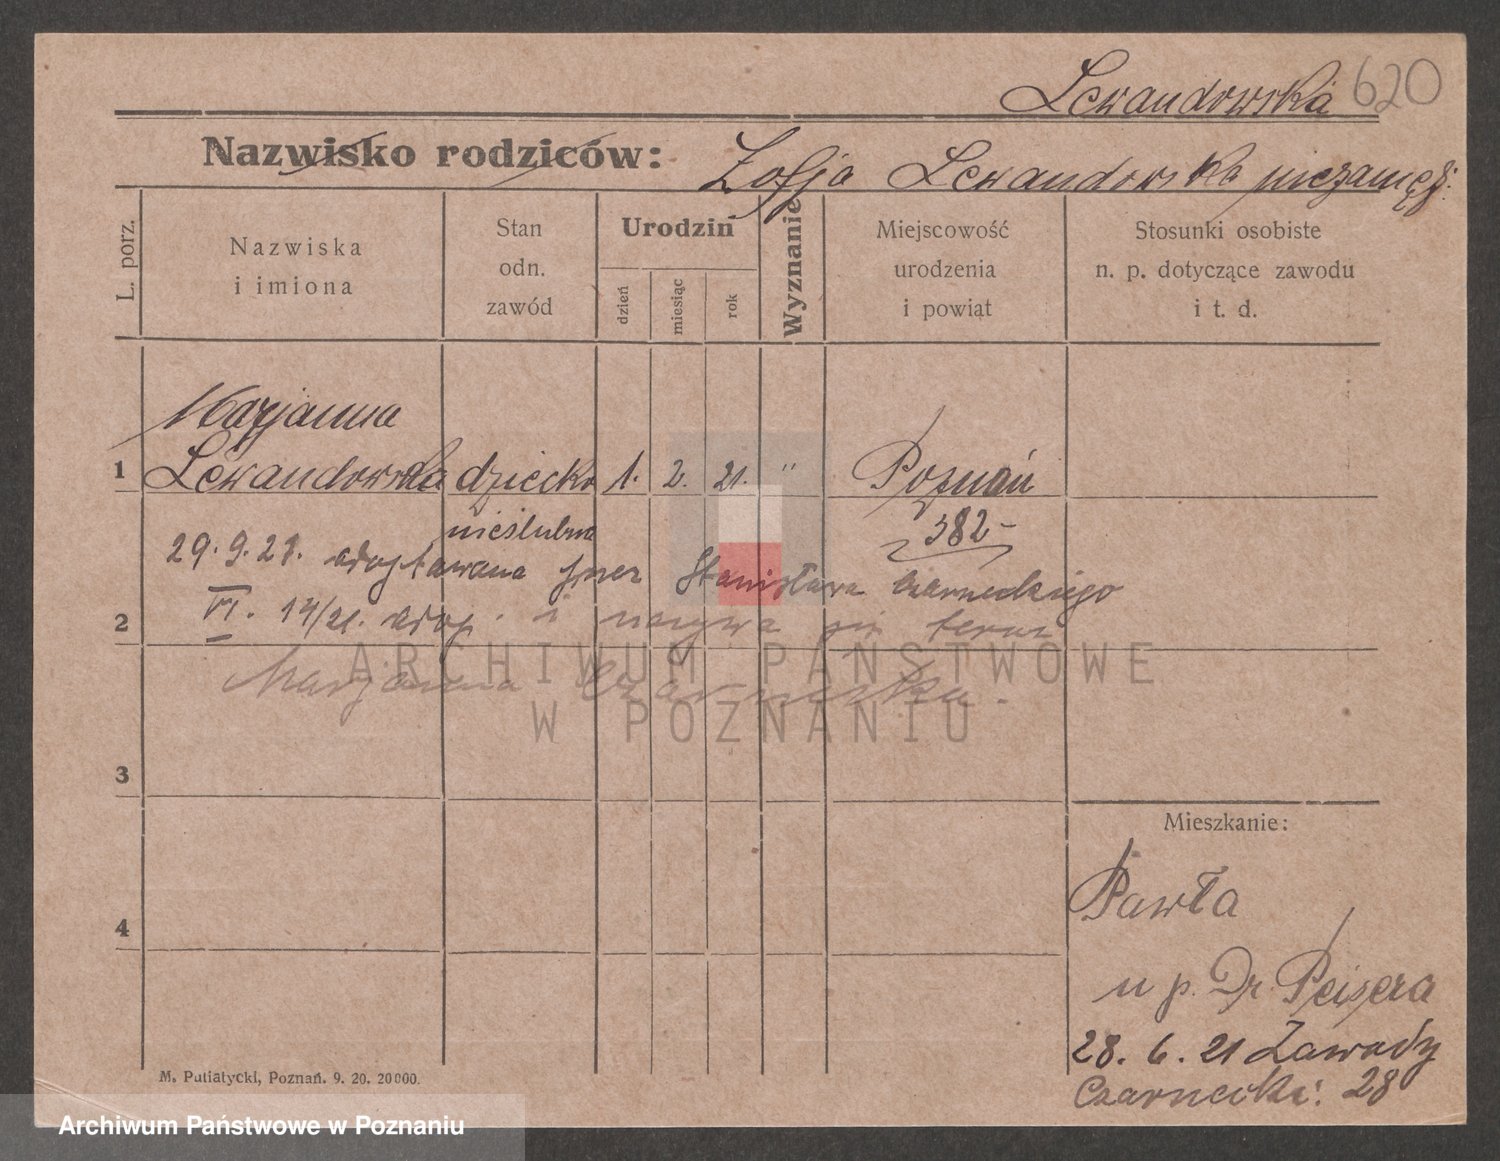 Lewandowska 620
Nazwisko rodziców: Zofja Lewandowska niezamęż:
L. porz.
Nazwiska
i imiona
Stan
odn.
zawód
Urodzin
dzień
miesiąc
rok
Wyznanie
Miejscowość
urodzenia
i powiat
Stosunki osobiste
n. p. dotyczące zawodu
i t. d.
Marjanna
1 Lewandowska dziecko 1. 2. 21. " Poznań
nieślubne 382-
29.9.21. adoptowana przez Stanisława Czarneckiego
2 VI. 14/21. adop. i nazywa się teraz
Marjanna Czarnecka.
ARCHIWUM PAŃSTWOWE
W POZNANIU
3
4
Mieszkanie:
Pawła
u p. Dr. Peisera
28. 6. 21 Zawady
Czarnecki: 28
M. Putiatycki, Poznań. 9. 20. 20000.
Archiwum Państwowe w Poznaniu